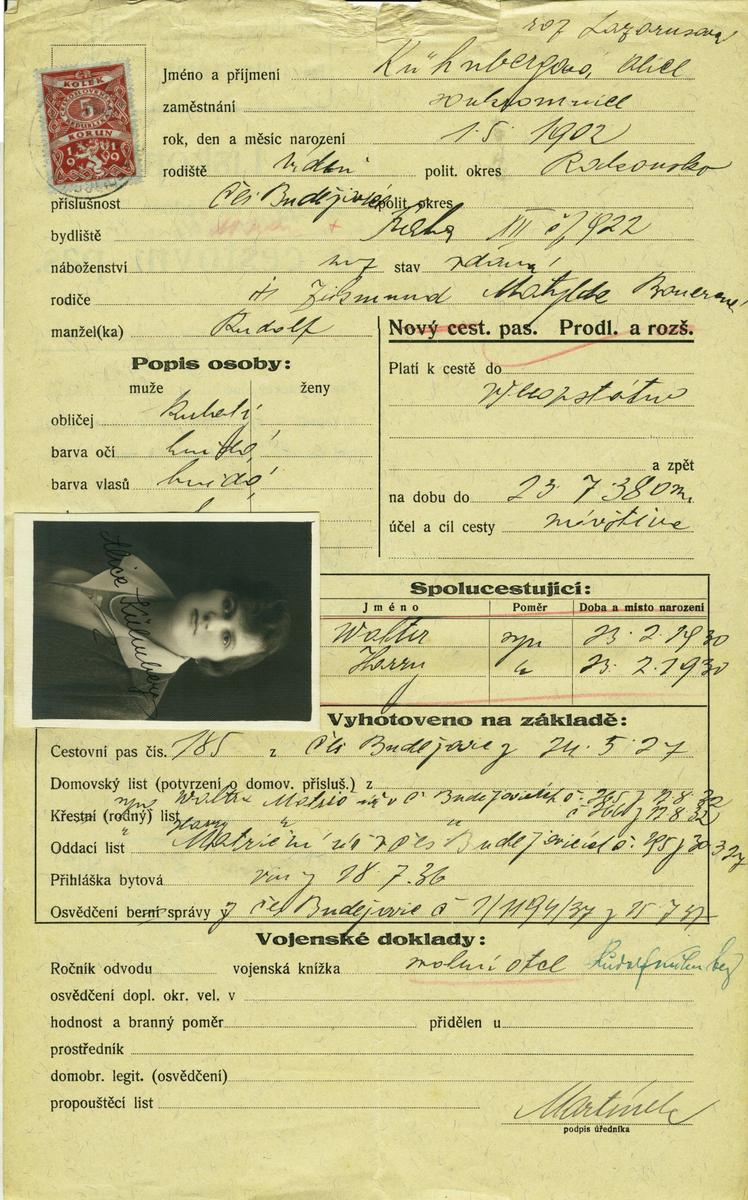 roz Lazarusová
KOLEK
5
KORUN
Jméno a příjmení Kühnbergová, Alice
zaměstnání soukromnice
rok, den a měsíc narození 1.5. 1902
rodiště Vídeň polit. okres Rakousko
příslušnost Čes Budějovice polit. okres
bydliště Praha XII čp 922
náboženství stav vdaná
rodiče Matylda Bauerová
manžel(ka) Rudolf
Nový cest. pas. Prodl. a rozš.
Popis osoby:
muže ženy
obličej
barva očí hnědá
barva vlasů hnědá
Platí k cestě do
a zpět
na dobu do 23 7 38
účel a cíl cesty
Alice Kühnberg
Spolucestující:
Jméno Poměr Doba a místo narození
Walter syn 23. 2. 1930
Harry " 23. 2. 1930
Vyhotoveno na základě:
Cestovní pas čís. 185 z Čes Budějovic z 24. 5. 27
Domovský list (potvrzení o domov. přísluš.) z
Křestní (rodný) list
Oddací list
Přihláška bytová 18 7. 36
Osvědčení berní správy z Čes Budějovic č
Vojenské doklady:
Ročník odvodu vojenská knižka svolení otce
osvědčení dopl. okr. vel. v
hodnost a branný poměr přidělen u
prostředník
domobr. legit. (osvědčení)
propouštěcí list
Martínek
podpis úředníka